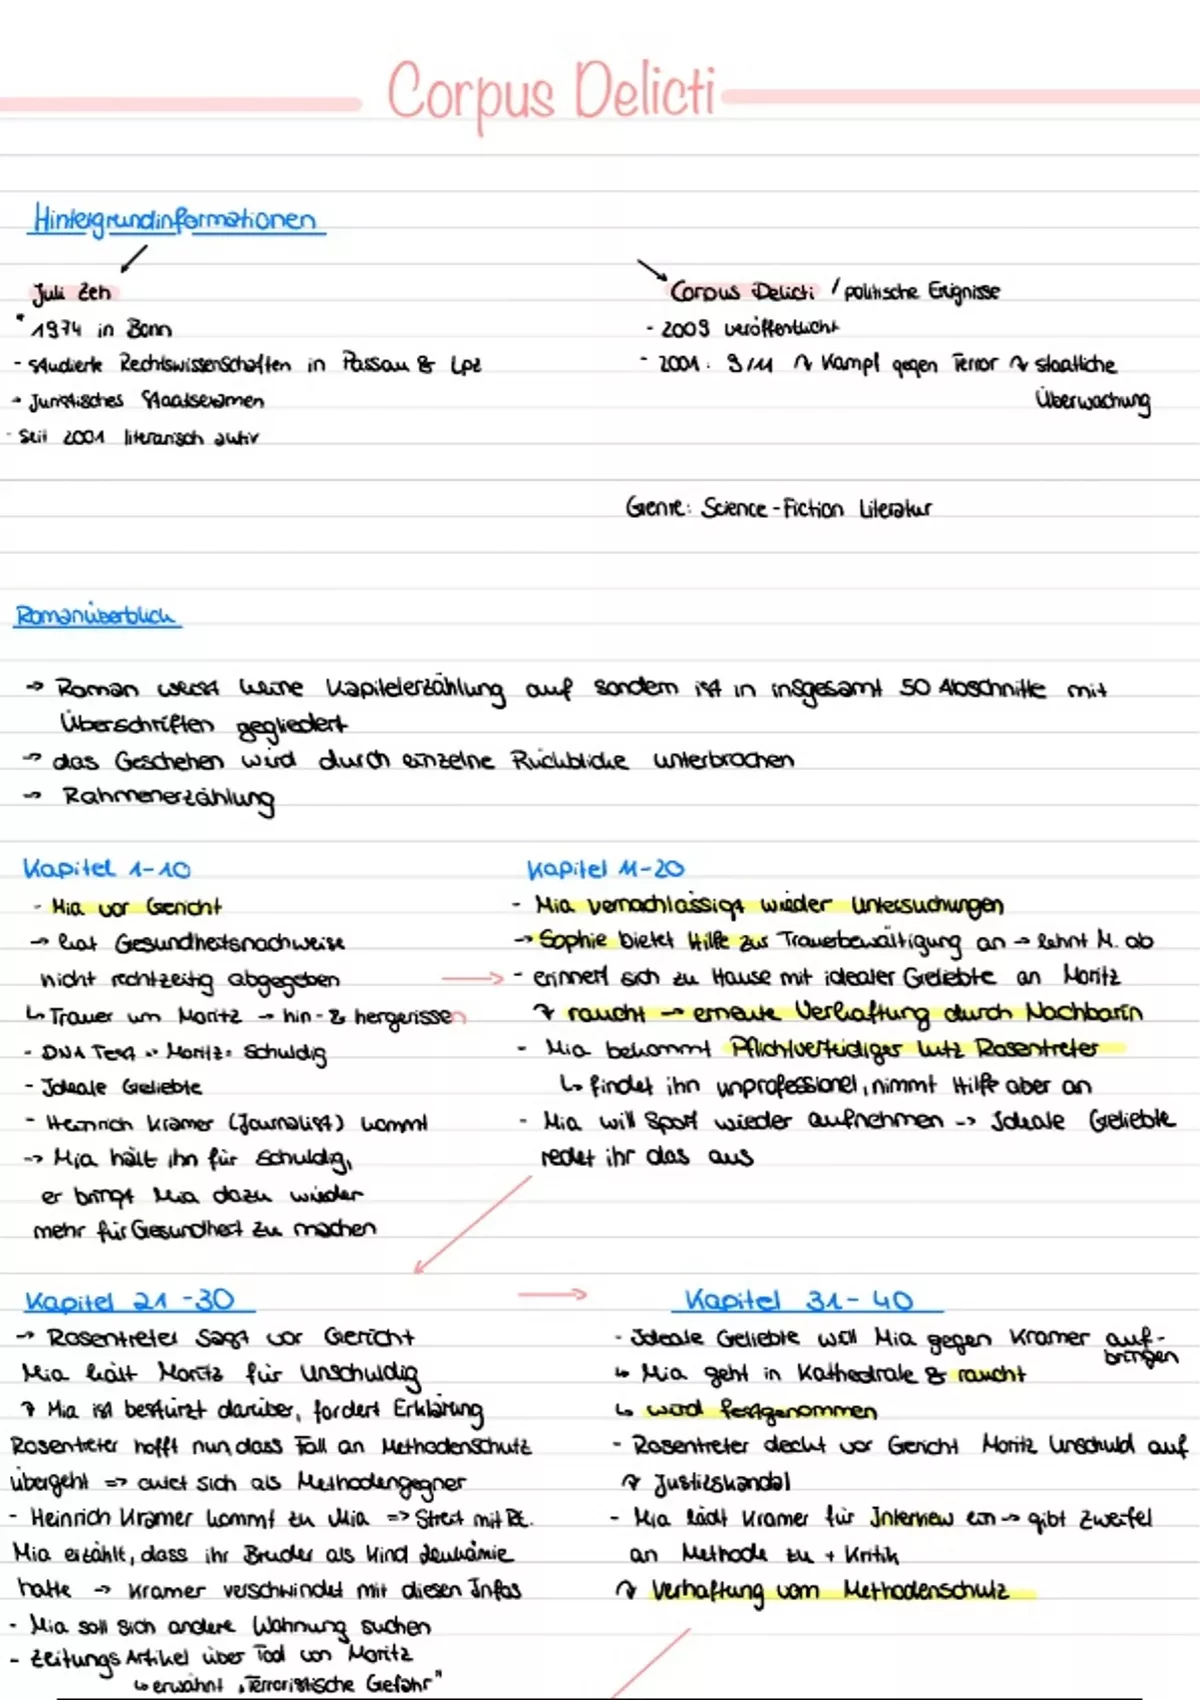 Corpus Delicti
Hintergrundinformationen
Juli Zeh
* 1974 in Bonn
- studierte Rechtswissenschaften in Passau & Lpz
- Juristisches Staatsexamen
- Seit 2001 literarisch aktiv
Corpus Delicti / politische Ereignisse
- 2009 veröffentlicht
- 2001: 9/11 ↷ Kampf gegen Terror ↷ staatliche
Überwachung
Genre: Science-Fiction Literatur
Romanüberblick
→ Roman weist keine Kapitelerzählung auf sondern ist in insgesamt 50 Abschnitte mit
Überschriften gegliedert
→ das Geschehen wird durch einzelne Rückblicke unterbrochen
→ Rahmenerzählung
Kapitel 1-10
- Mia vor Gericht
→ hat Gesundheitsnachweise
nicht rechtzeitig abgegeben
↳ Trauer um Moritz → hin- & hergerissen
- DNA Test → Moritz = schuldig
- Ideale Geliebte
- Heinrich Kramer (Journalist) kommt
→ Mia hält ihn für schuldig,
er bringt Mia dazu wieder
mehr für Gesundheit zu machen
Kapitel 11-20
- Mia vernachlässigt wieder Untersuchungen
→ Sophie bietet Hilfe zur Trauerbewältigung an → lehnt M. ab
- erinnert sich zu Hause mit idealer Geliebte an Moritz
↷ raucht → erneute Verhaftung durch Nachbarin
- Mia bekommt Pflichtverteidiger Lutz Rosentreter
↳ findet ihn unprofessionel, nimmt Hilfe aber an
- Mia will Sport wieder aufnehmen → Ideale Geliebte
redet ihr das aus
Kapitel 21-30
→ Rosentreter sagt vor Gericht
Mia hält Moritz für Unschuldig
↷ Mia ist bestürzt darüber, fordert Erklärung
Rosentreter hofft nun, dass Fall an Methodenschutz
übergeht => outet sich als Methodengegner
- Heinrich Kramer kommt zu Mia => Streit mit Rt.
Mia erzählt, dass ihr Bruder als Kind Leukämie
hatte → Kramer verschwindet mit diesen Infos
- Mia soll sich andere Wohnung suchen
- Zeitungs Artikel über Tod von Moritz
↳ erwähnt „Terroristische Gefahr"
Kapitel 31-40
- Ideale Geliebte will Mia gegen Kramer auf-
bringen
↳ Mia geht in Kathedrale & raucht
↳ wird festgenommen
- Rosentreter deckt vor Gericht Moritz Unschuld auf
↷ Justizskandal
- Mia lädt Kramer für Interview ein → gibt Zweifel
an Methode zu + Kritik
↷ Verhaftung vom Methodenschutz